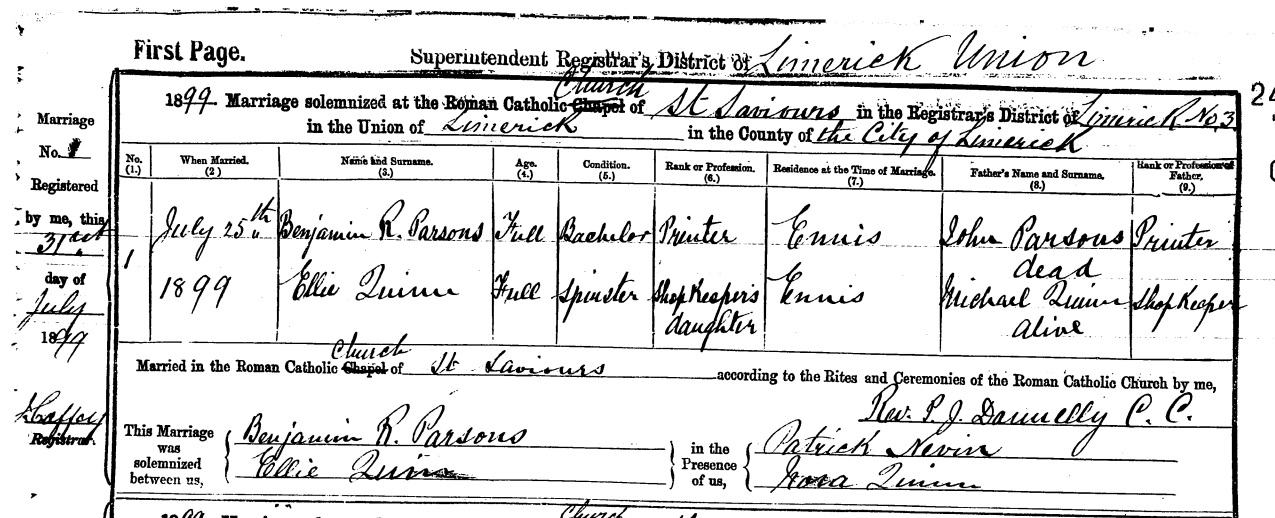 First Page.
Superintendent Registrar's District of Limerick Union
1899 Marriage solemnized at the Roman Catholic Chapel Church of St Saviours in the Registrar's District of Limerick No. 3
in the Union of Limerick in the County of the City of Limerick
24
Marriage
No. 1
Registered
by me, this
31st
day of
July
1899
Registrar.
No. (1.) When Married. (2) Name and Surname. (3.) Age. (4.) Condition. (5.) Rank or Profession. (6.) Residence at the Time of Marriage. (7.) Father's Name and Surname. (8.) Rank or Profession of Father. (9.)
1 July 25th Benjamin R. Parsons Full Bachelor Printer Ennis John Parsons dead Printer
1899 Ellie Quinn Full Spinster Shop Keeper's daughter Ennis Michael Quinn alive Shop Keeper
Married in the Roman Catholic Chapel Church of St Saviours according to the Rites and Ceremonies of the Roman Catholic Church by me,
Rev. P. J. Dannelly C. C.
This Marriage was solemnized between us,
Benjamin R. Parsons
Ellie Quinn
in the Presence of us,
Patrick Nevin
Nora Quinn
1899 Church